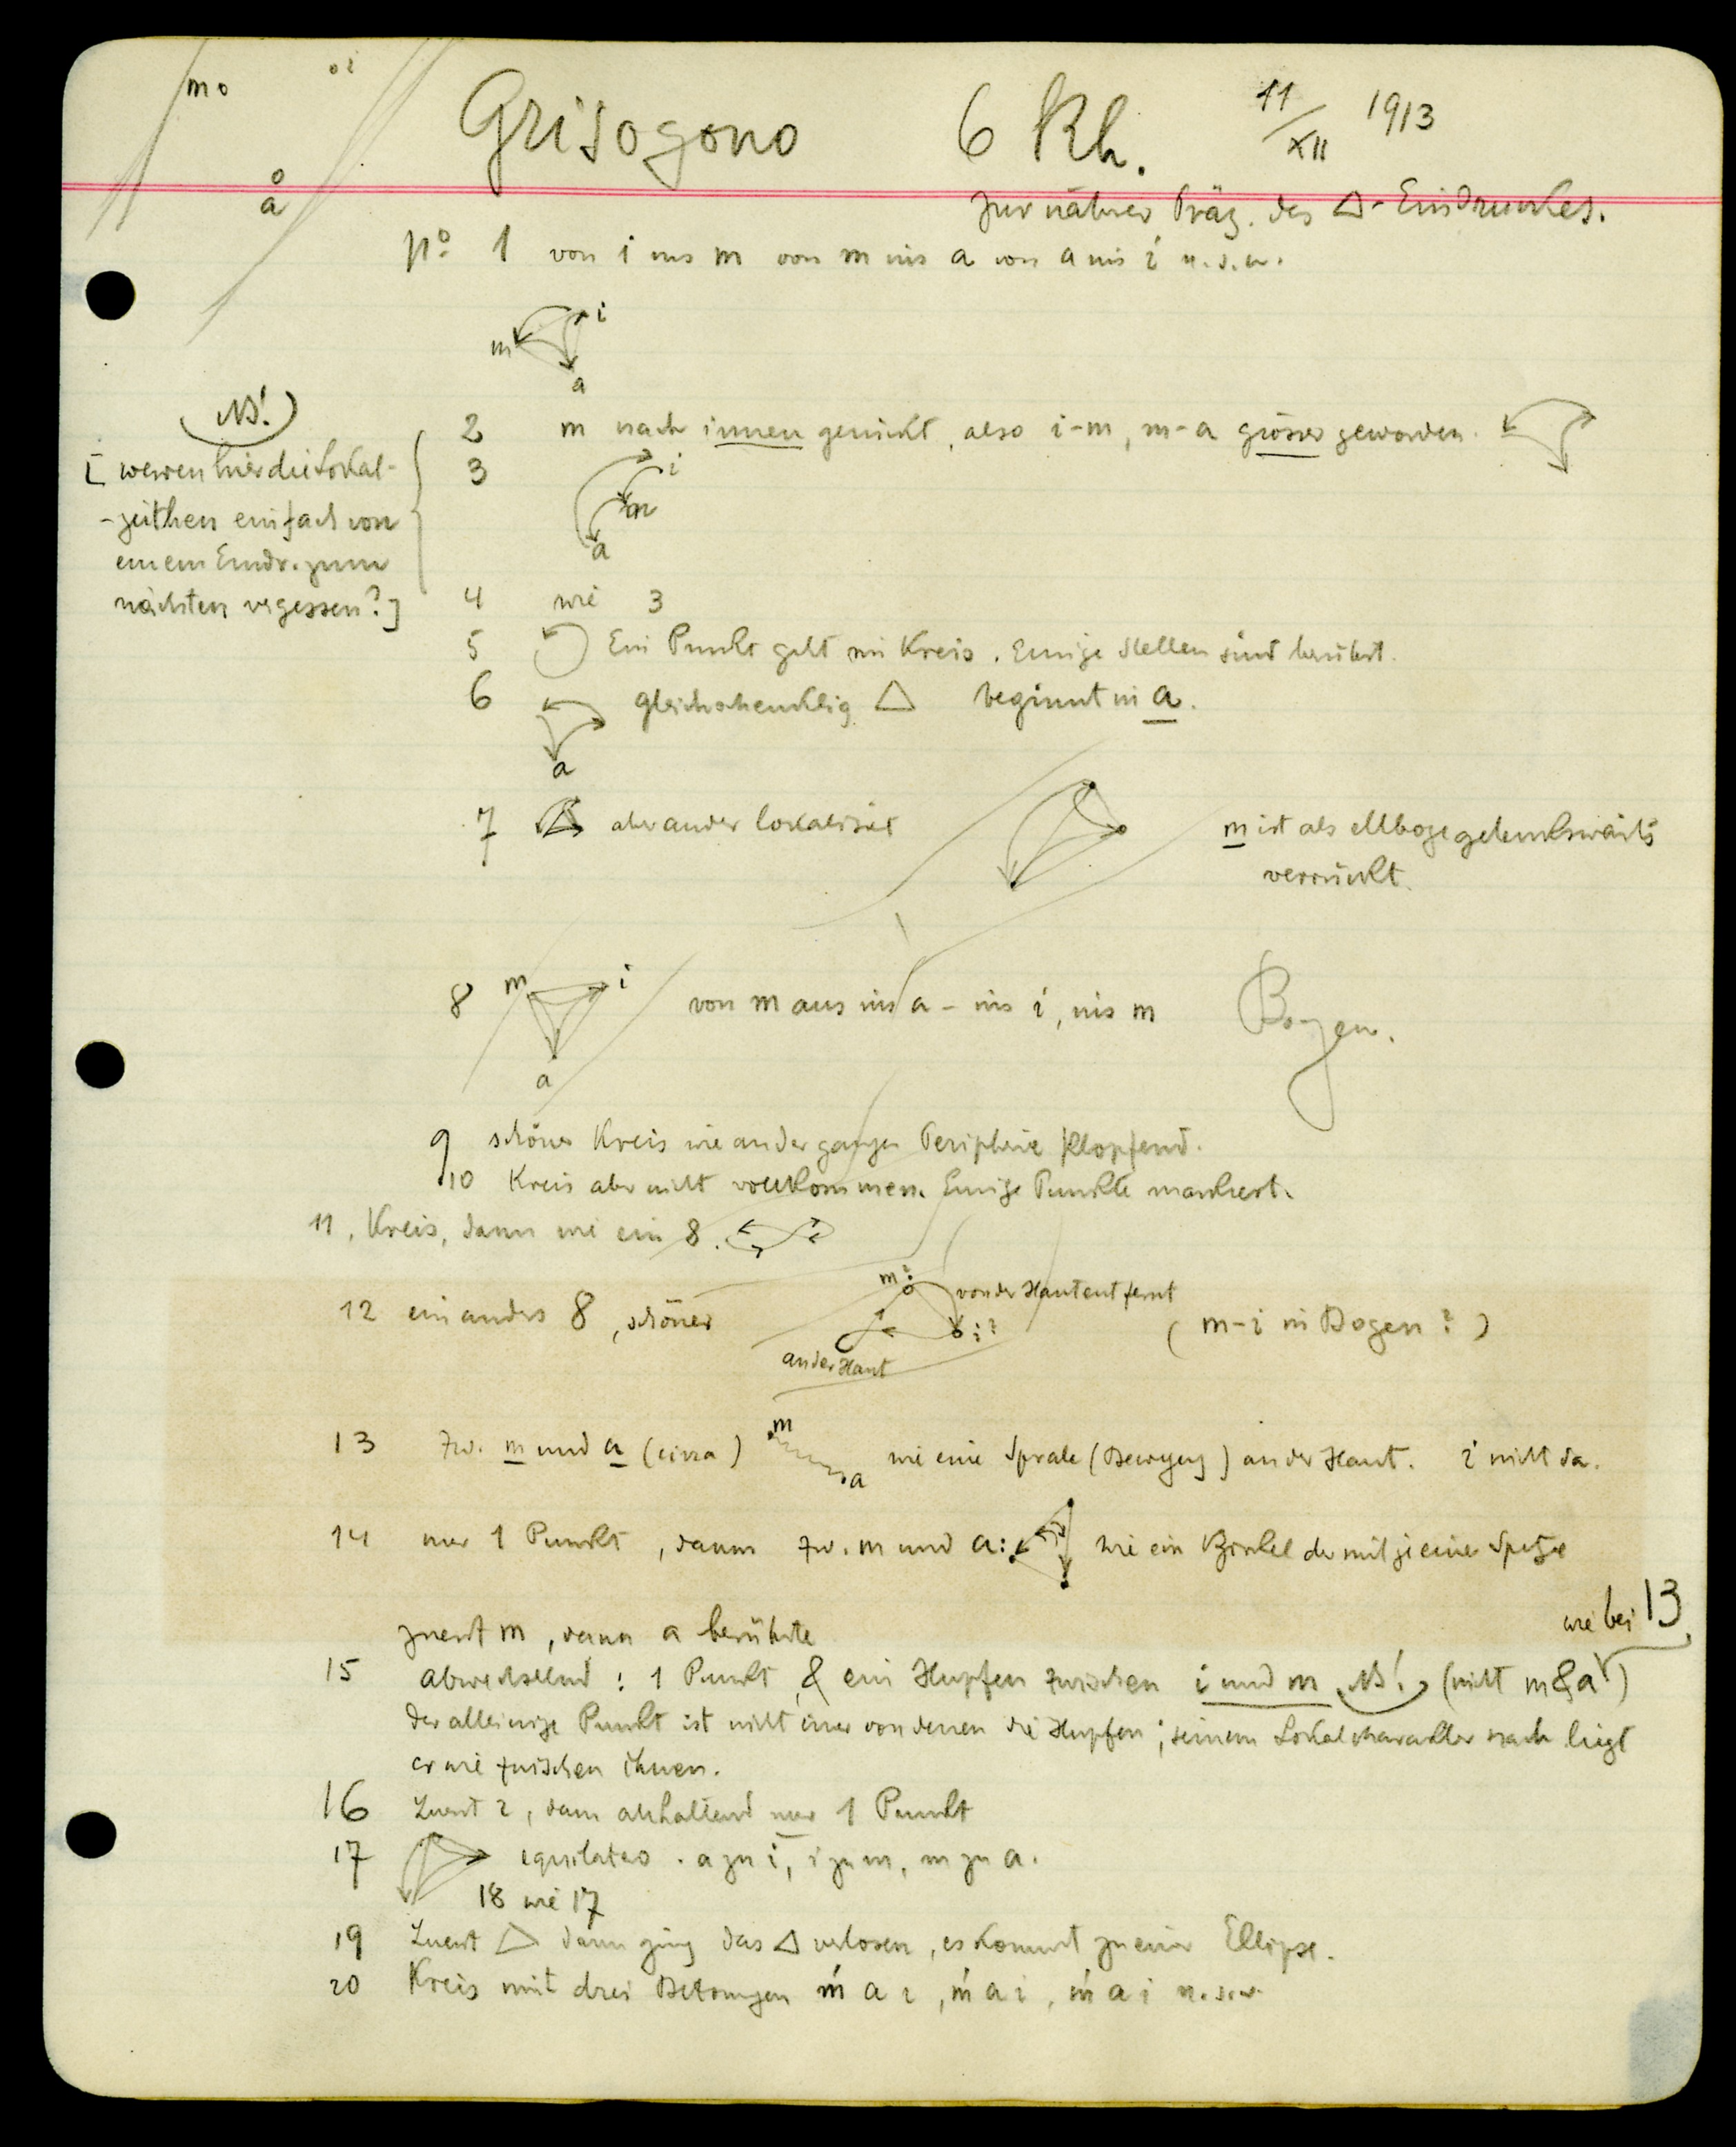 m
i
a
Grisogono 6 Kh. 11/XII 1913
zur näheren Präz. des △-Eindruckes.
No 1 von i ins m von m ins a von a ins i u.s.w.
i
m
a
NB!
2 m nach innen gerückt, also i-m, m-a grösser geworden.
[ werden hier die Lokal-
-zeichen einfach von
einem Eindr. zum
nächsten vergessen? ]
3 i
m
a
4 wie 3
5 Ein Punkt geht im Kreis. Einige Stellen sind berührt.
6 gleichschenklig △ beginnt in a.
a
7 aber anders lokalisiert m ist als ellbogegelenkswärts
verrückt.
8 m i von m aus ins a - ins i, ins m Bogen.
a
9 schöner Kreis wie an der ganzen Peripherie klopfend.
10 Kreis aber nicht vollkommen. Einige Punkte markiert.
11, Kreis, dann wie ein 8.
12 ein anders 8, schöner m? von der Haut entfernt
i? (m-i in Bogen?)
an der Haut
13 zw. m und a (circa) m a wie eine Sprale (Bewegung) an der Haut. i nicht da.
14 nur 1 Punkt, dann zw. m und a: wie ein Zirkel der mit je einer Spitze
zuerst m, dann a berührte
wie bei 13
15 abwechselnd: 1 Punkt & ein Hupfen zwischen i und m NB! (nicht m & a)
der alleinige Punkt ist nicht einer von denen die Hupfen; seinem Lokalcharakter nach liegt
er wie zwischen ihnen.
16 Zuerst 2, dann anhaltend nur 1 Punkt
17 equilatero. a zu i, i zu m, m zu a.
18 wie 17
19 Zuerst △ dann ging das △ verloren, es kommt zu einer Ellipse.
20 Kreis mit drei Betonungen ḿ a i, ḿ a i, ḿ a i u.s.w.